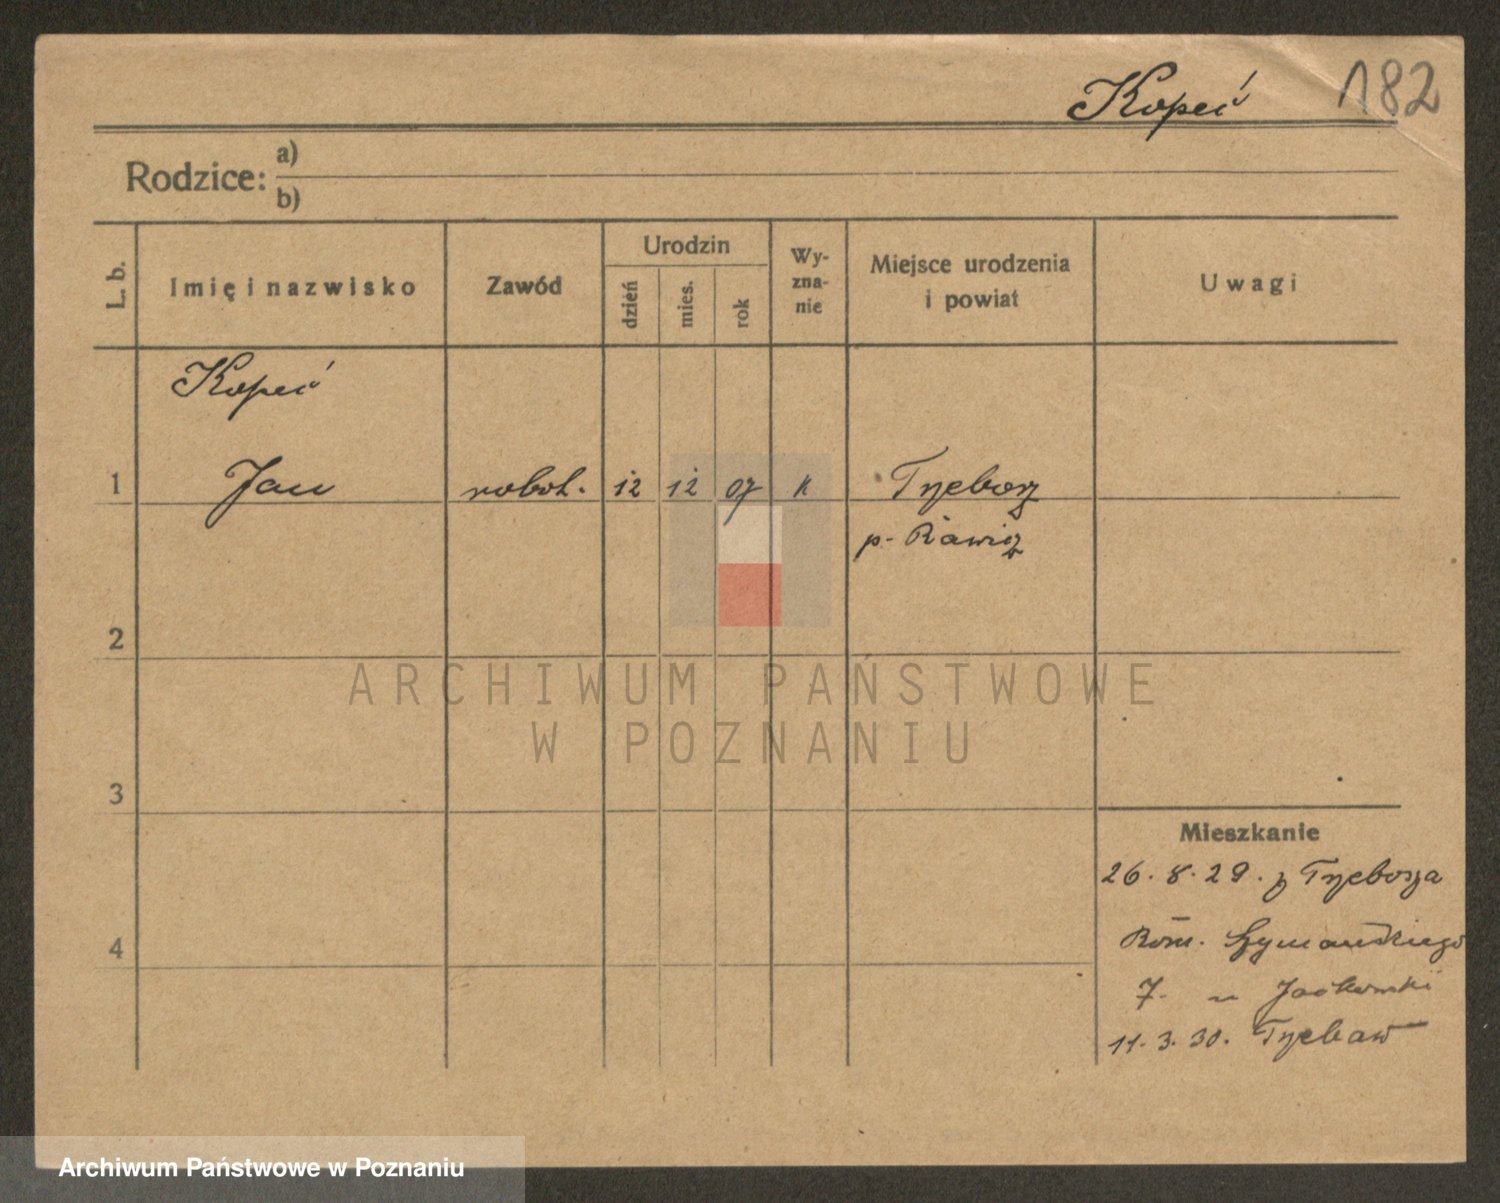 Kopeć 182
Rodzice: a)
b)
L. b. Imię i nazwisko Zawód Urodzin dzień mies. rok Wy-zna-nie Miejsce urodzenia i powiat Uwagi
Kopeć
1 Jan robot. 12 12 07 k Trzebosz
p. Rawicz
2
ARCHIWUM PAŃSTWOWE
W POZNANIU
3
Mieszkanie
26. 8. 29. z Trzebosza
4 Rom. Szymańskiego
7. u
11. 3. 30.
Archiwum Państwowe w Poznaniu